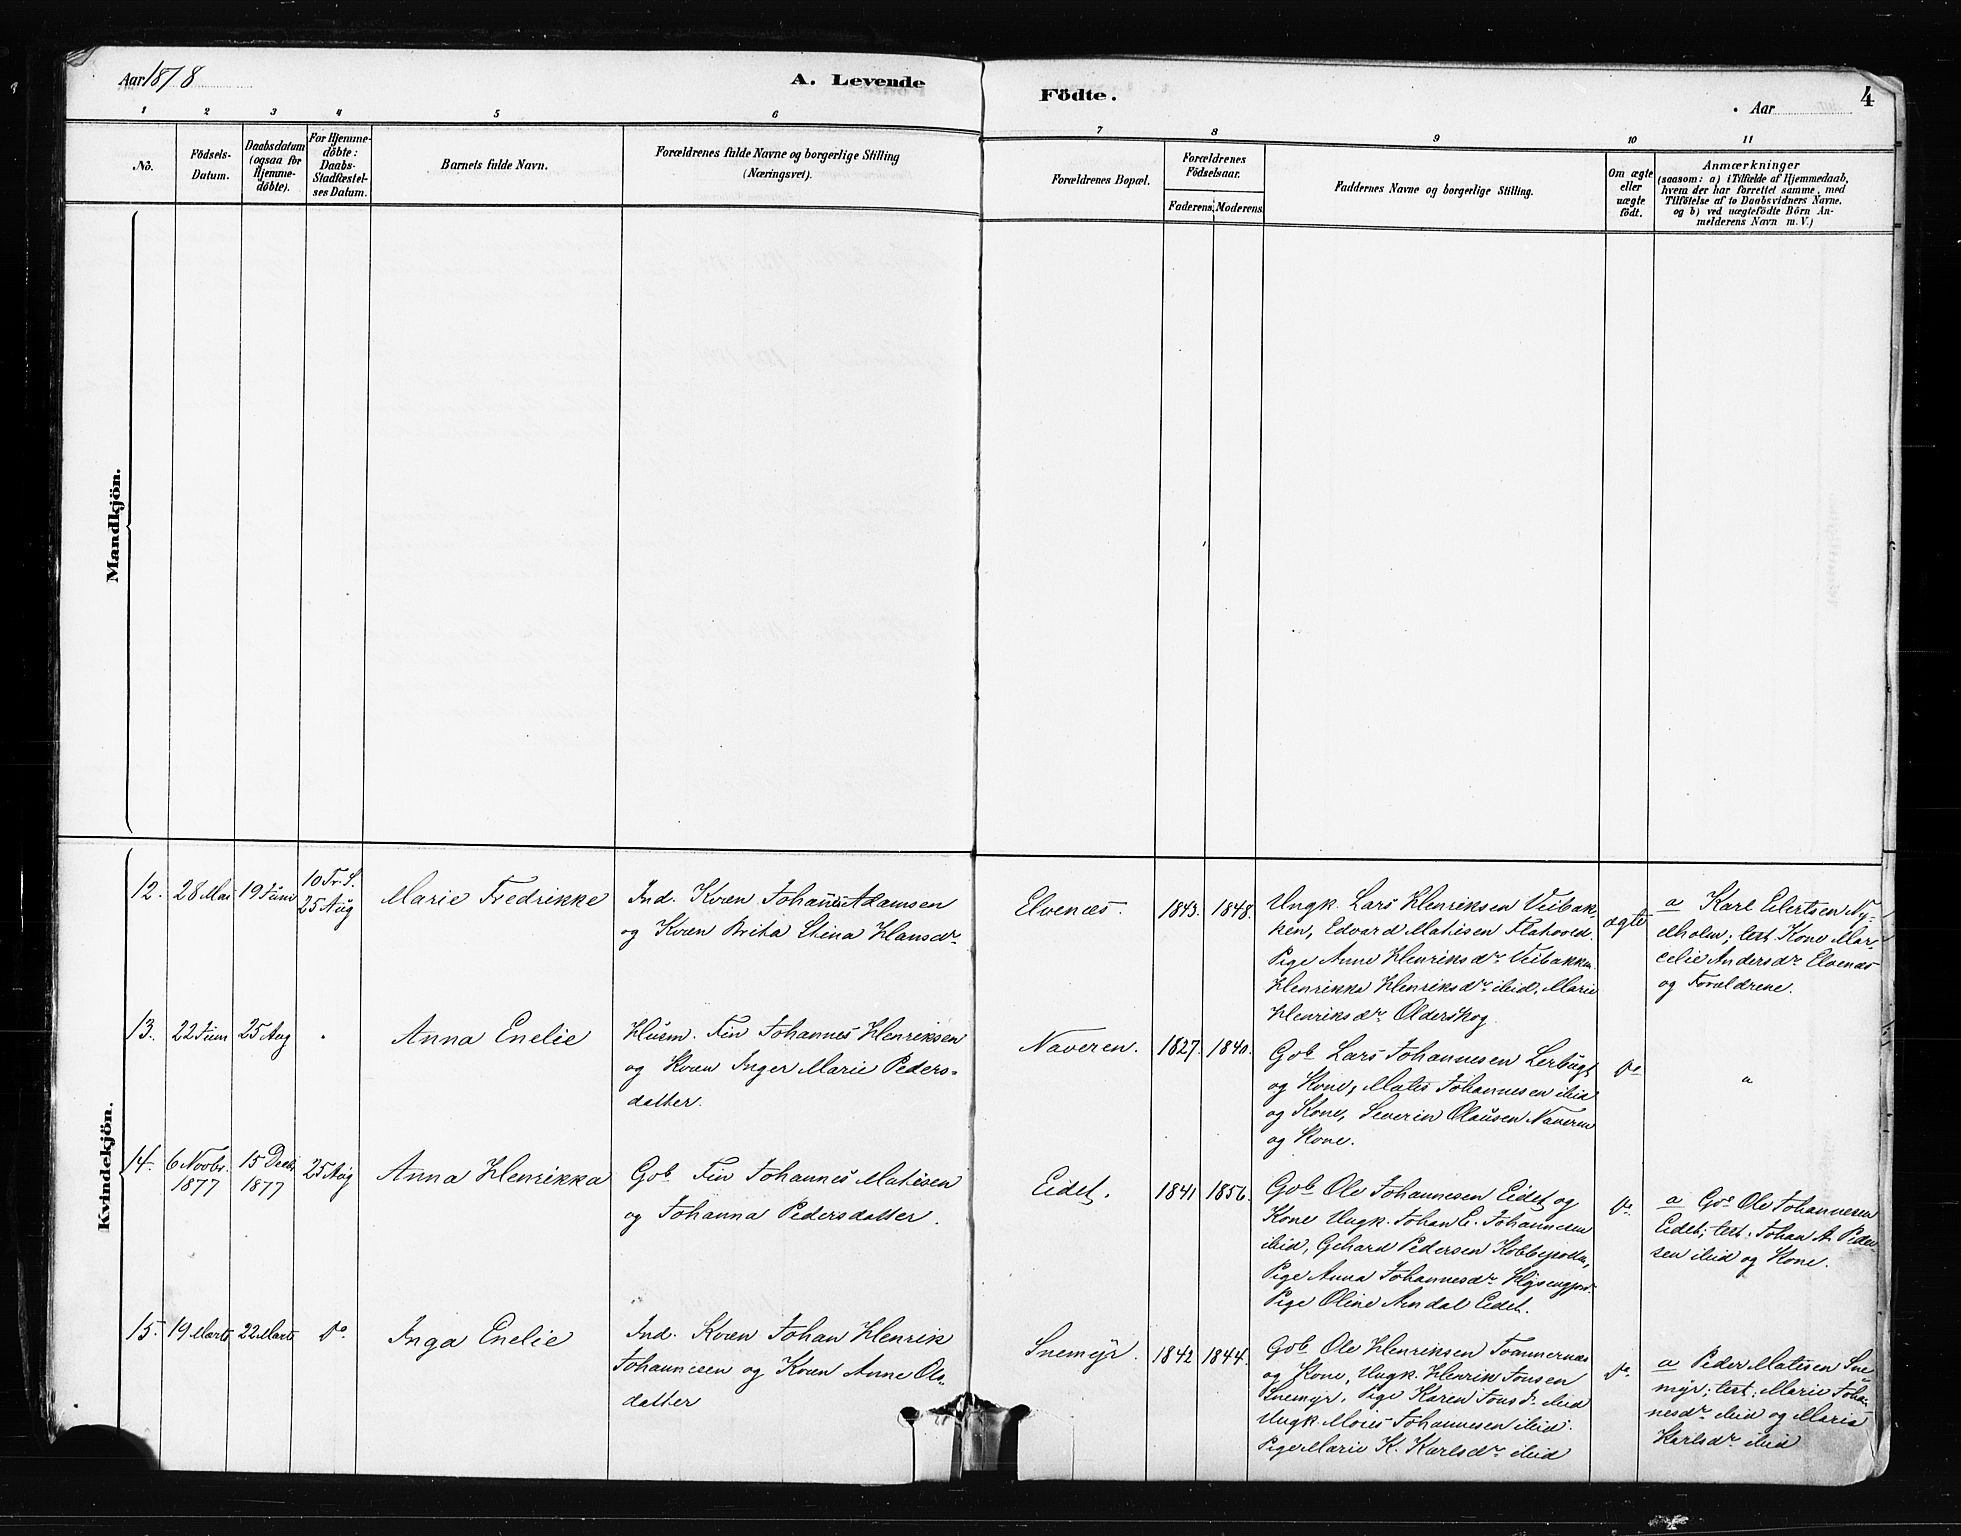 Aar 1878
A. Levende
Födte.
Aar
4
1 2 3 4 5 6 7 8 9 10 11
No.
Födsels-
Datum.
Daabsdatum
(ogsaa for
Hjemme-
döbte).
For Hjemme-
döbte:
Daabs-
Stadfæstel-
ses Datum.
Barnets fulde Navn.
Forældrenes fulde Navne og borgerlige Stilling
(Næringsvei).
Forældrenes Bopæl.
Forældrenes
Födselsaar.
Faderens. Moderens.
Faddernes Navne og borgerlige Stilling.
Om ægte
eller
uægte
födt.
Anmærkninger
(saasom: a) i Tilfælde af Hjemmedaab,
hvem der har forrettet samme, med
Tilföielse af to Daabsvidners Navne,
og b) ved uægtefödte Börn An-
melderens Navn m. V.)
Mandkjön.
Kvindekjön.
12. 28 Mai 19 Juni
10 Tr. S.
25 Aug
Marie Fredrikke
Ind. Kvæn Johannes Adamsen
og Kvæn Brita Stina Hansdr.
Elvenæs. 1843. 1848.
Ungk. Lars Henriksen Veibak-
ken, Edvard Matisen Flahoved.
Pige Anne Henriksdr. Veibakken
Henrikka Henriksdr. ibid, Marie
Henriksdr. Olderskog.
ægte
a Karl Eilertsen Ny-
elholm; test. Kone Mar-
celie Andersdr. Elvenæs
og Forældrene.
13. 22 Juni 25 Aug "
Anna Enelie
Husm. Fin Johannes Henriksen
og Kvæn Inger Marie Peders-
datter.
Naveren. 1827. 1840.
Gob. Lars Johannesen Lerbugt
og Kone, Matis Johannesen ibid
og Kone, Severin Olausen Naveren
og Kone.
do
"
14. 6 Novbr.
1877
15 Decb.
1877
25 Aug
Anna Henrikka
Gob. Fin Johannes Matisen
og Johanna Pedersdatter.
Eidet. 1841 1856.
Gob. Ole Johannesen Eidet og
Kone Ungk. Johan E. Johannesen
ibid, Gehard Pedersen Kobbepollen,
Pige Anna Johannesdr.
Pige Oline Arndal Eidet.
do.
a Go. Ole Johannesen
Eidet; test. Johan A. Peder-
sen ibid og Kone.
15. 19 Marts 22 Marts do.
Inga Enelie
Ind. Kvæn Johan Henrik
Johannesen og Kvæn Anne Ols-
datter
Snemyr. 1842 1844.
Gob. Ole Henriksen Tømmernæs
og Kone, Ungk. Henrik Jonsen
Snemyr, Pige Karen Jonsd. ibid
Ungk. Moses Johannesen ibid.
Pige Marie K. Karlsdr. ibid
do.
a Peder Matisen Sne-
myr; test. Marie Johan-
nesdr. ibid og Maria
Karlsdr. ibid